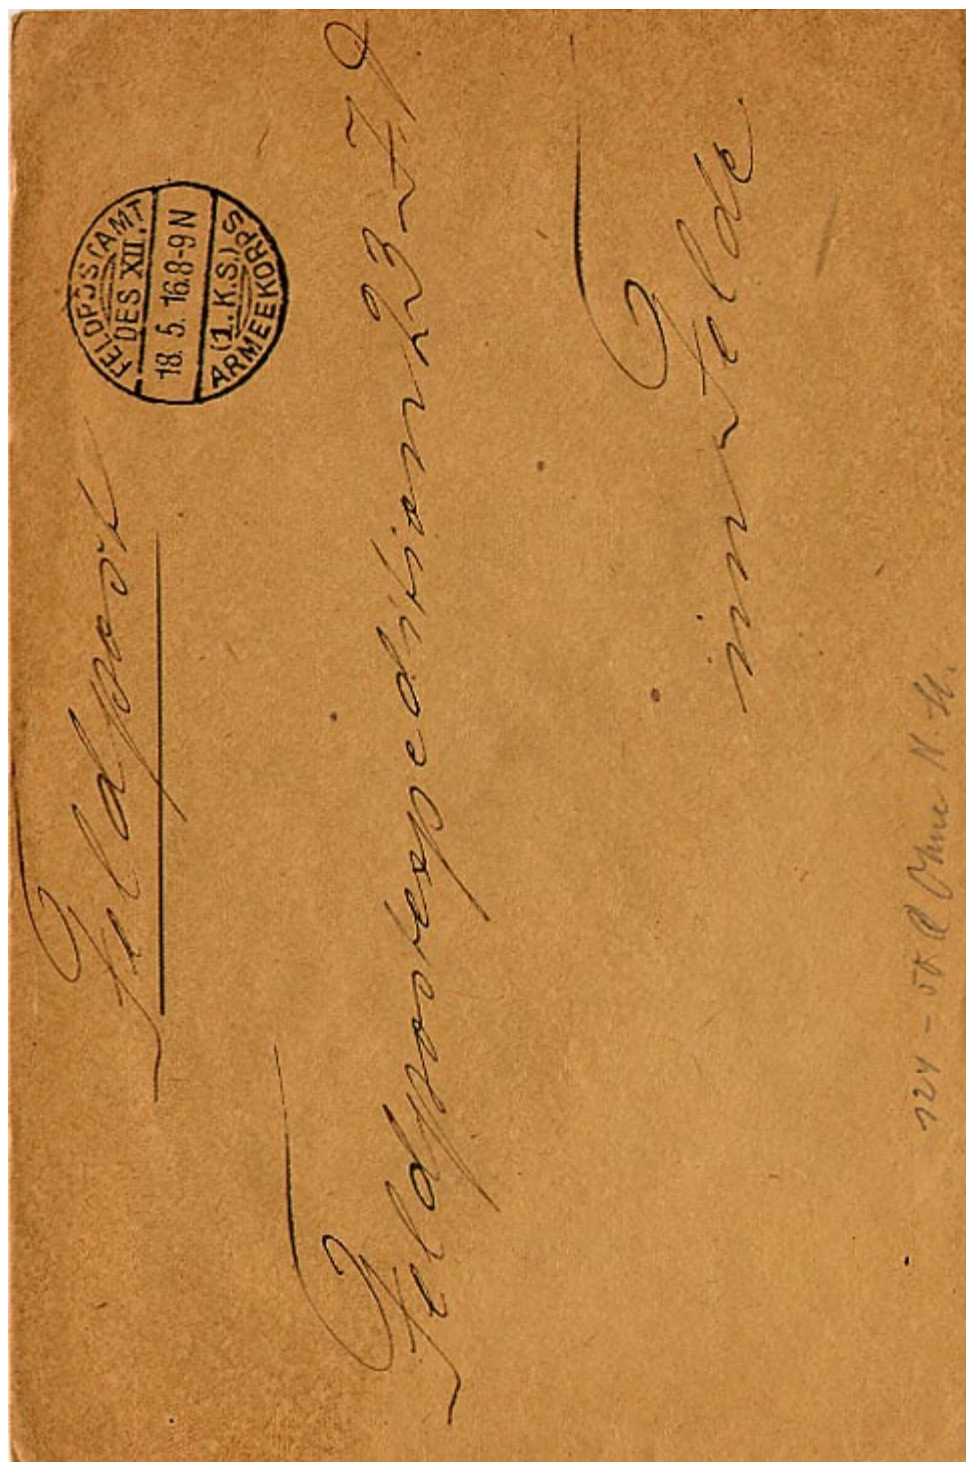 Feldpost
FELDPOSTAMT
DES XII.
18. 5. 16. 8-9 N
(1. K.S.)
ARMEEKORPS
Feldpostexpedition 23
im Felde.
124 -